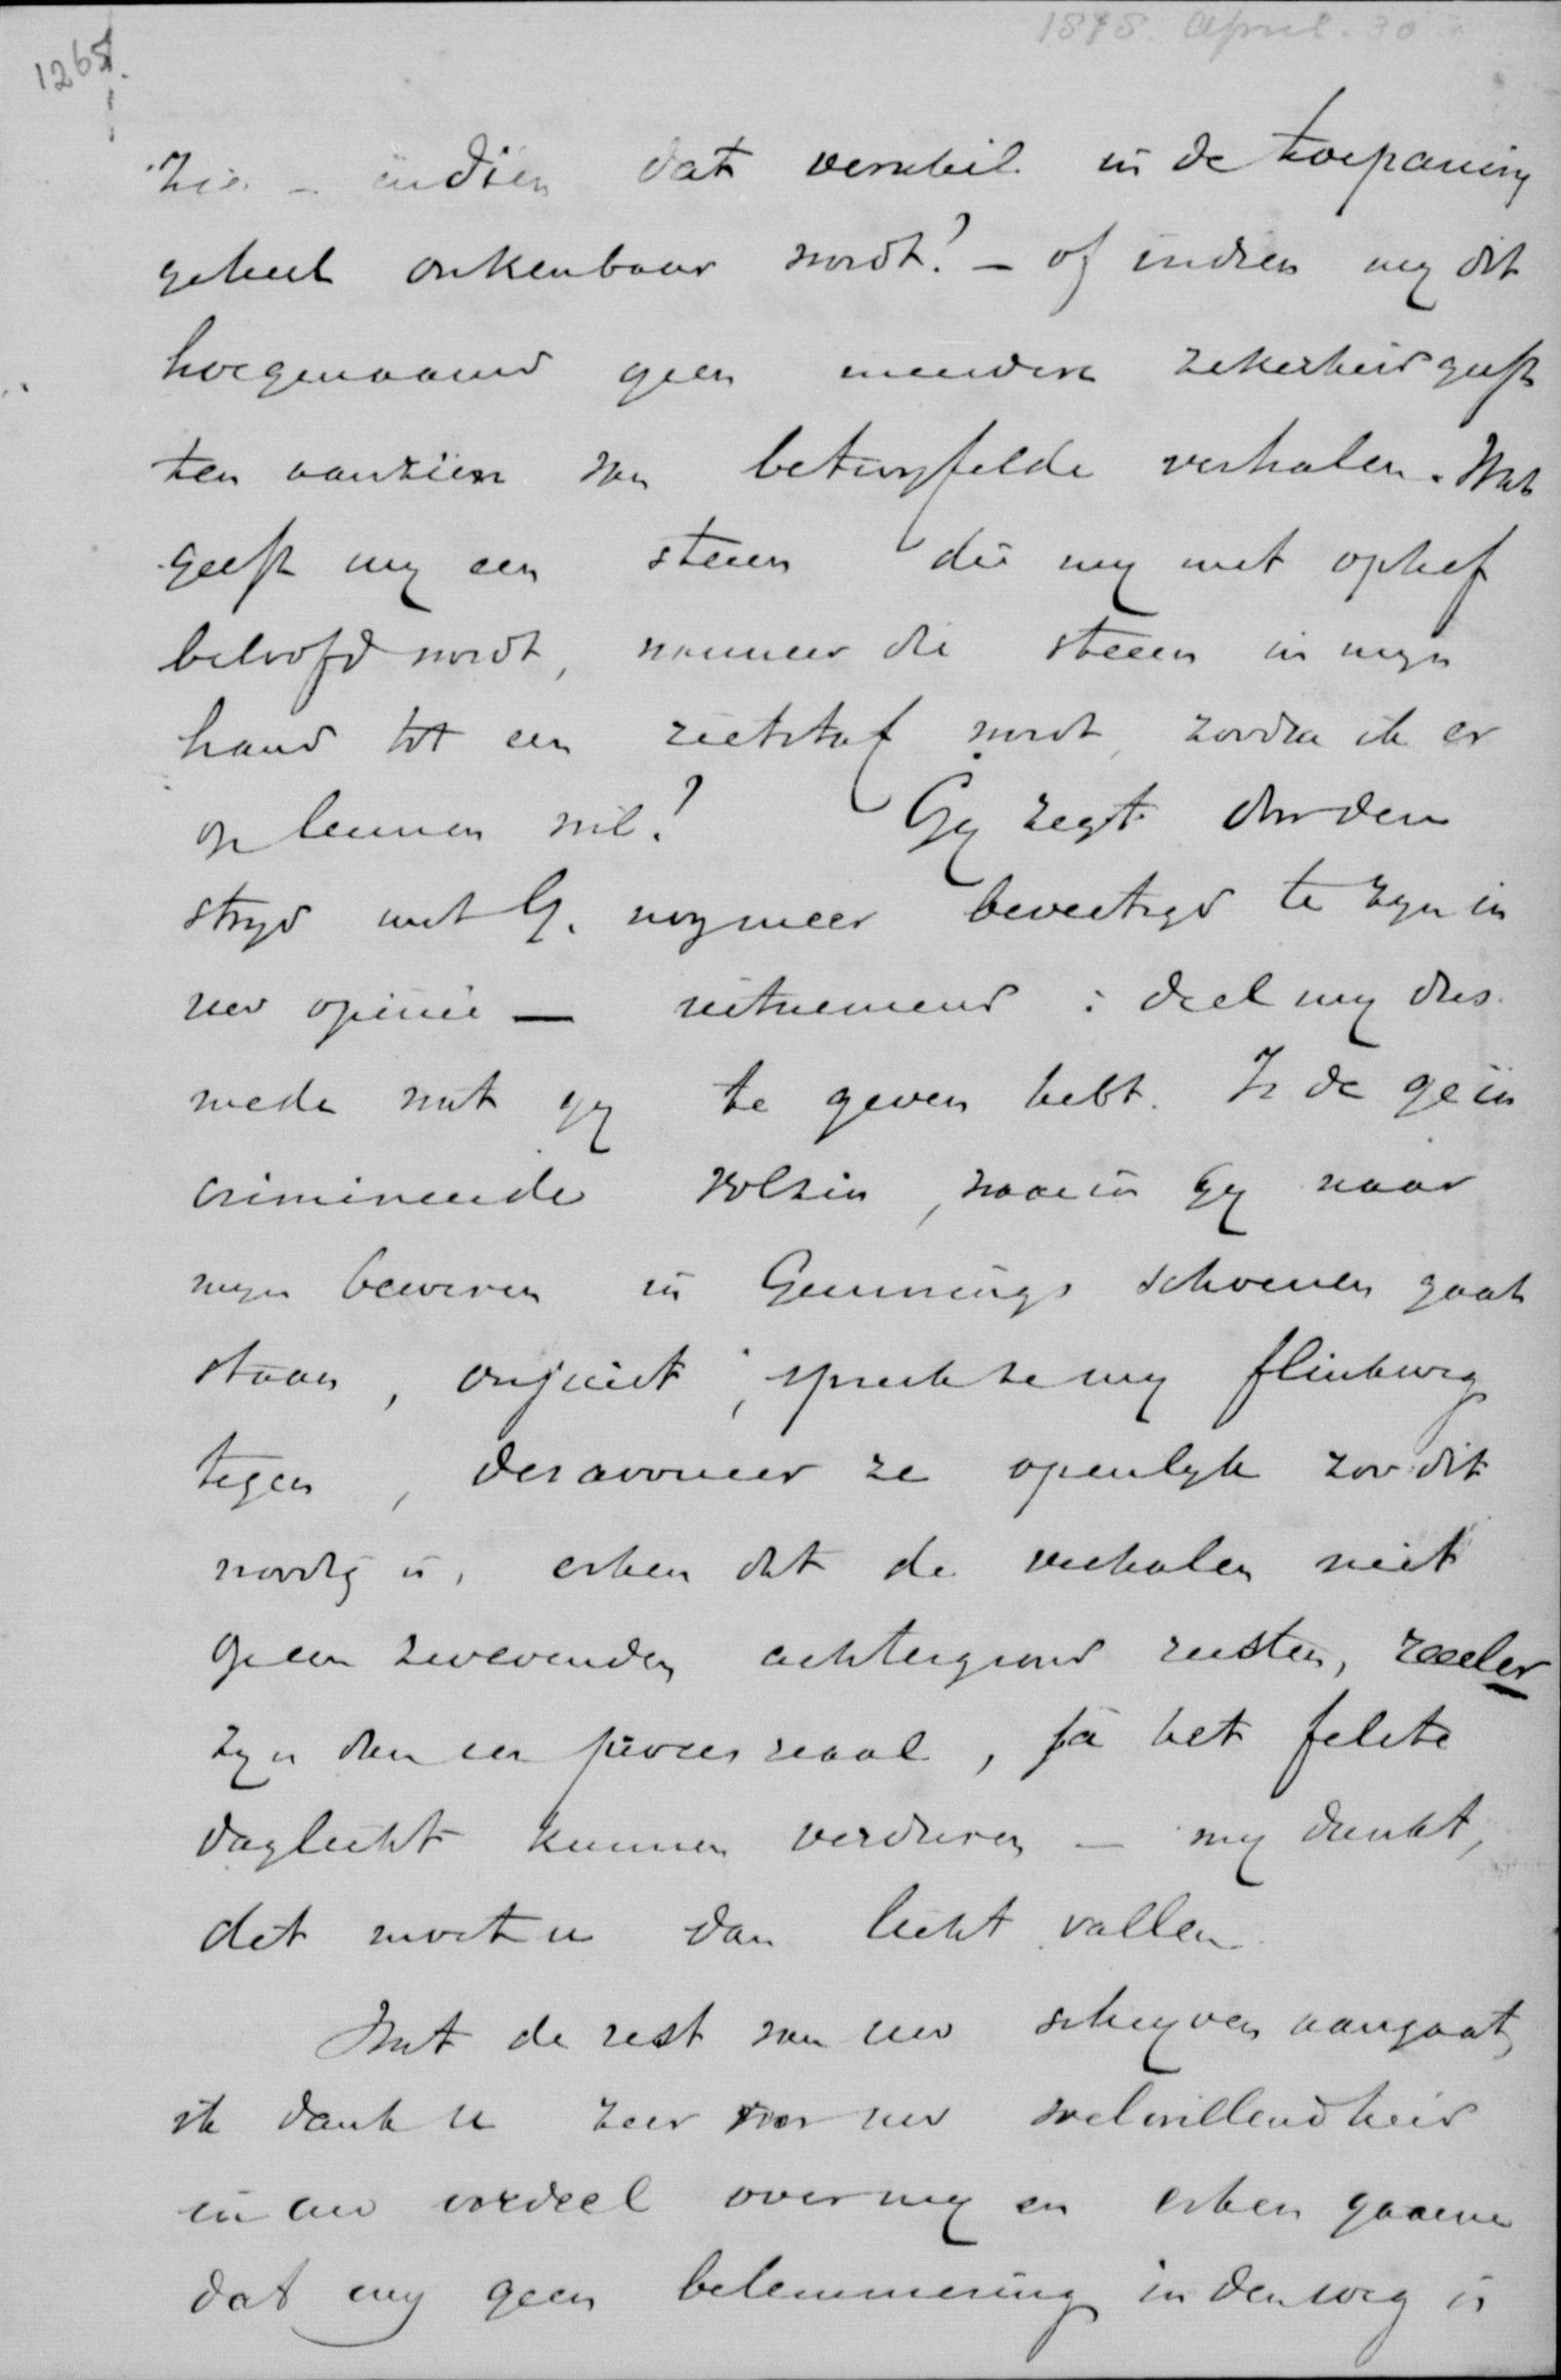 1878. April. 30
1265.
zie - indien dat verschil in de toepassing
geheel onkenbaar wordt? - of indien my dit
hoegenaamd geen meerdere zekerheid geeft
ten aanzien van betwyfelde verhalen. Wat
geeft my een steun die my met ophef
beloofd wordt, wanneer die steun in myn
hand tot een rietstaf wordt, zoodra ik er
op leunen wil? Gy zegt door den
stryd met G. nog meer bevestigd te zyn in
uw opinie — uitnemend: deel my dus
mede wat gy te geven hebt. Is de gein
crimineerde volzin, waarin Gy naar
myn beweren in Gunnings schoenen gaat
staan, onjuist; spreek ze my flinkweg
tegen, desavoueer ze openlyk zoo dit
noodig is, erken dat de verhalen niet
op een zwevenden achtergrond rusten, reeeler
zyn dan een proces verbaal, ja het felste
daglicht kunnen verduren - my dunkt,
dit moet u dan licht vallen.
Wat de rest van uw schryven aangaat,
ik dank u zeer voor uw welwillendheid
in uw oordeel over my en erken gaarne
dat my geen belemmering in den weg is